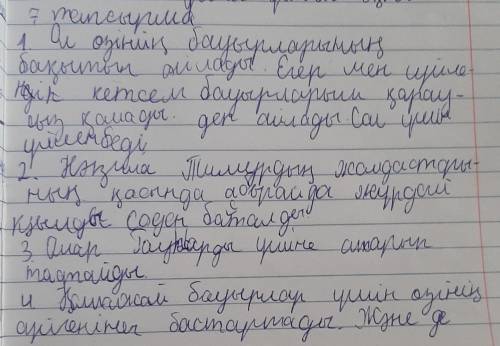 7 тапсырма
1. Ол өзінің бауырларының
бақытын ойлады. Егер мен үйле-
кетсем бауырларым қарау-
сыз қалады. деп ойлады. Сол үшін
үйленбеді
2. Нәзипа Тимурдың жолдастары-
ның қасында абырайда жүрдей
қылды содан баталды
3. Омар Гауһарды үйіне апарып
тастайды
4 Қамажай бауырлар үшін өзінің
сүйгенінен бастартады. Және де